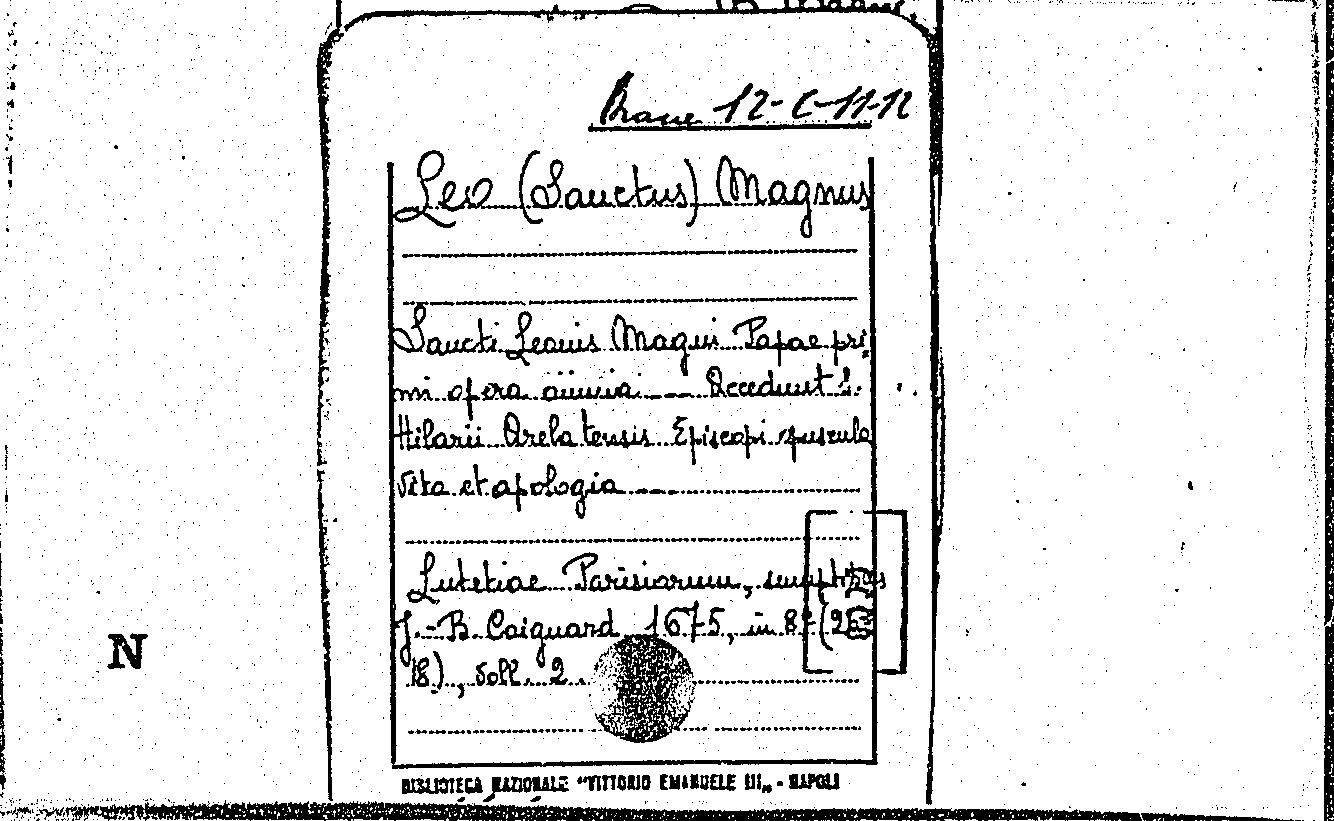 Branc. 12-C-11-12
Leo (Sanctus) Magnus
Sancti Leonis Magni Papae pri-
mi opera omnia ___ Accedunt S.
Hilarii Arelatensis Episcopi opuscula
vita et apologia ___
Lutetiae Parisiorum, sumptibus
J.-B. Coignard 1675, in 8º
18), voll. 2.
BIBLIOTECA NAZIONALE "VITTORIO EMANUELE III„ - NAPOLI
N